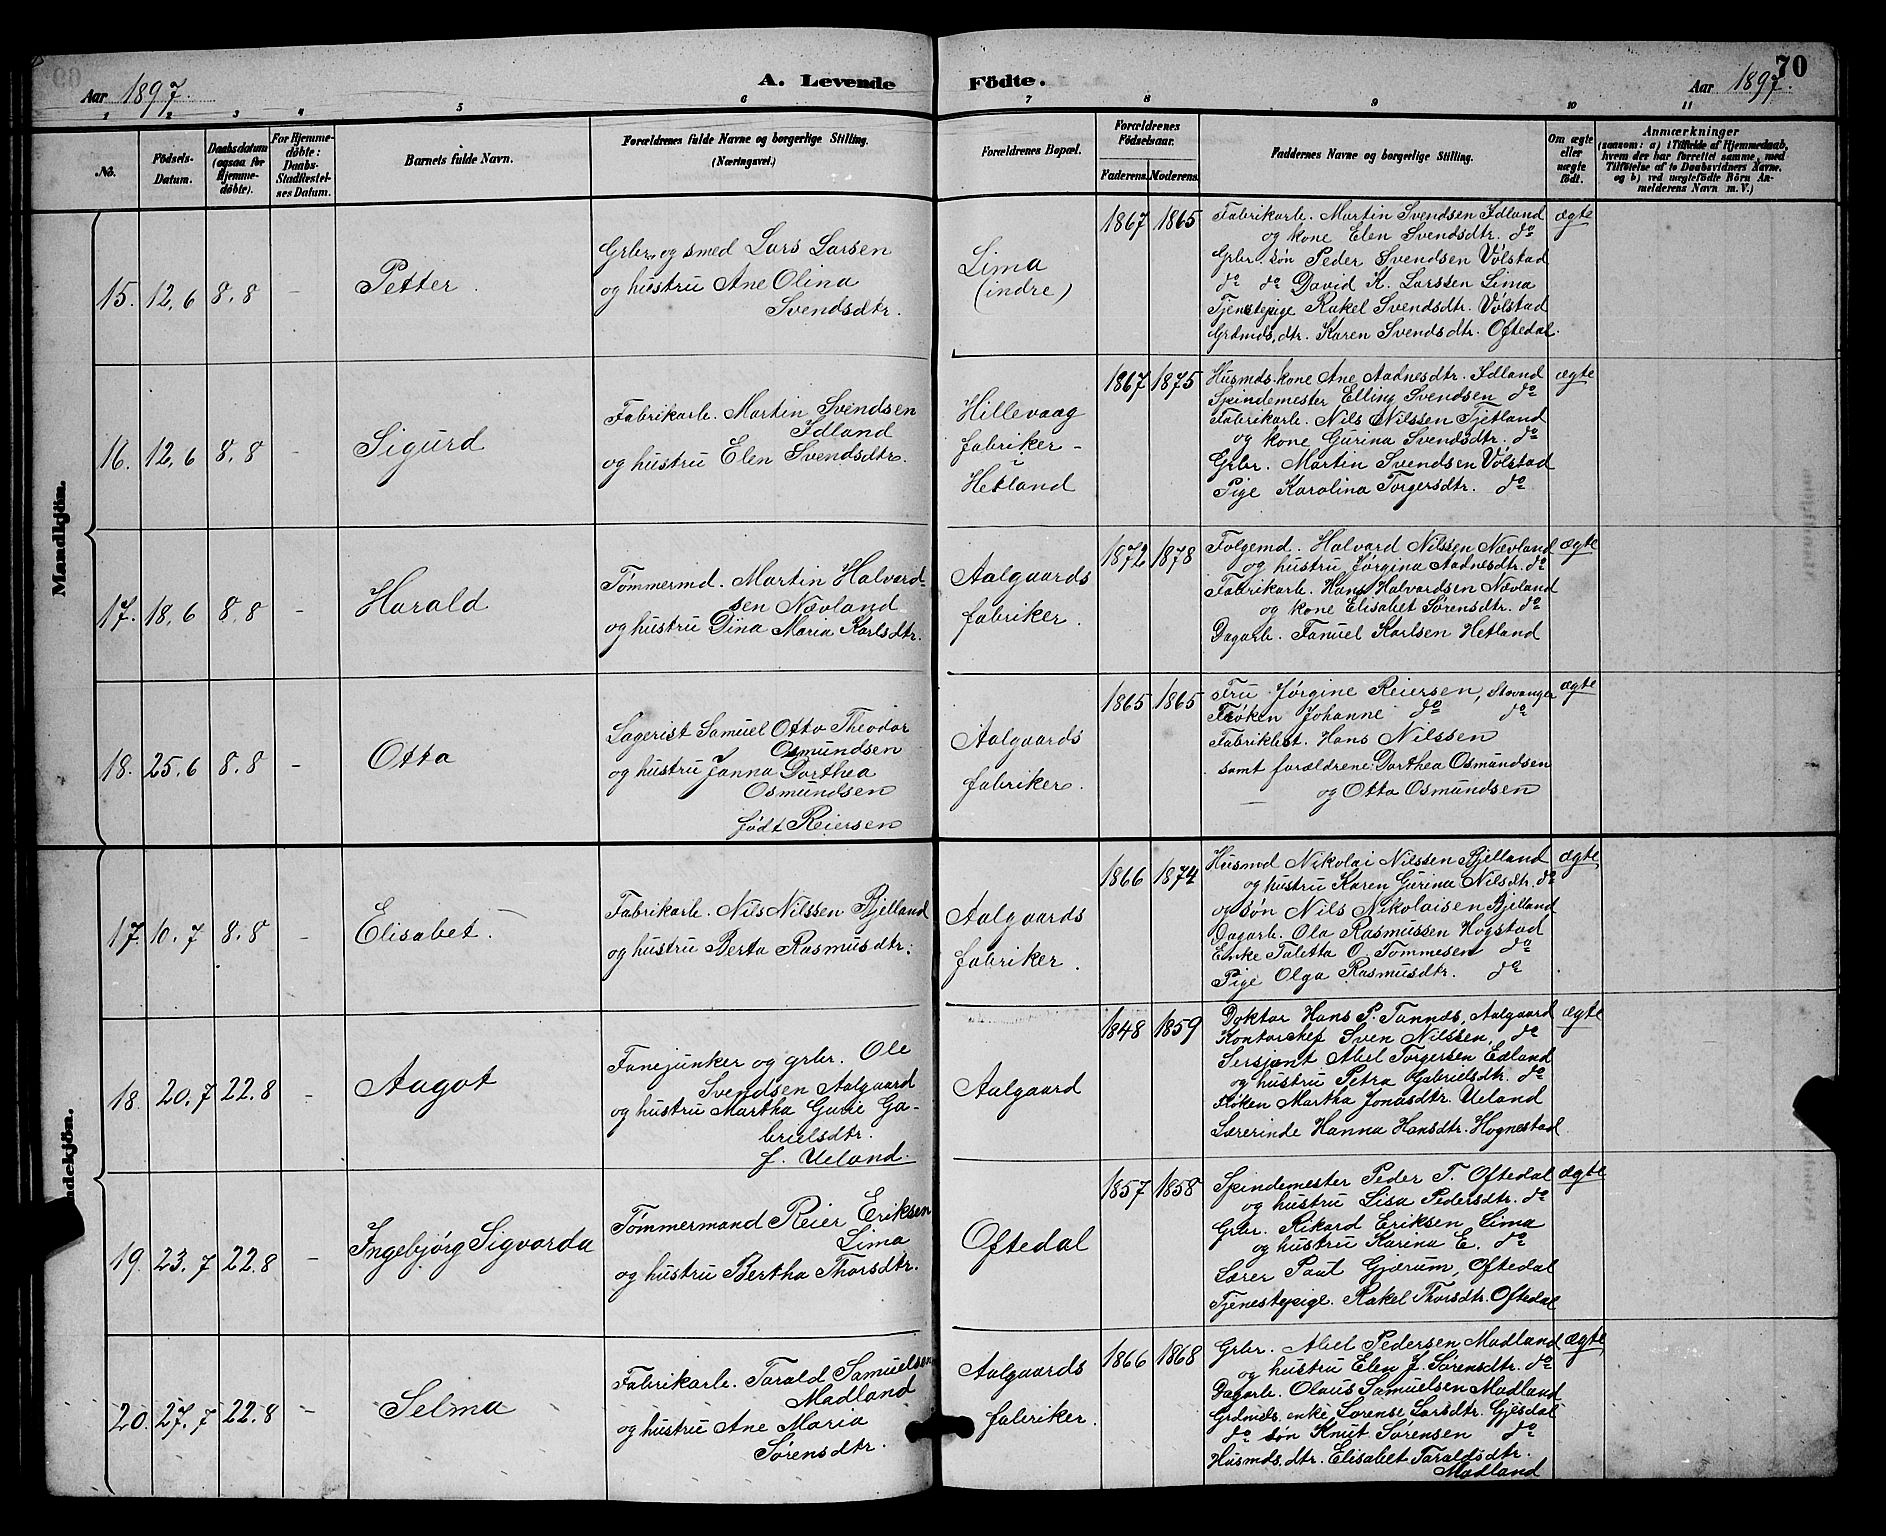 Aar 1897.
A. Levende Födte.
Aar 1897.
70
1 2 3 4 5 6 7 8 9 10 11
No.
Födsels-Datum.
Daabsdatum (ogsaa for Hjemme-döbte).
For Hjemme-döbte: Daabs-Stadfæstel-ses Datum.
Barnets fulde Navn.
Forældrenes fulde Navne og borgerlige Stilling. (Næringsvei.)
Forældrenes Bopæl.
Forældrenes Födselsaar.
Faderens. Moderens.
Faddernes Navne og borgerlige Stilling.
Om ægte eller uægte födt.
Anmærkninger
(saasom: a) i Tilfælde af Hjemmedaab, hvem der har forrettet samme, med Tilföielse af to Daabsvidners Navne, og b) ved uægtefödte Börn An-melderens Navn m. V.)
Mandkjön.
15. 12,6 8.8 – Petter.
Grbr. og smed Lars Larsen
og hustru Ane Olina
Svendsdtr.
Lima
(indre)
1867 1865
Fabrikarb. Martin Svendsen Idland
og kone Elen Svendsdtr. do
Grbr. søn Peder Svendsen Vølstad
do do David K. Larssen Lima
Tjenestepige Rakel Svendsdtr. Vølstad
Grdmds. dtr. Karen Svendsdtr. Oftedal.
ægte
16. 12,6 8.8 – Sigurd
Fabrikarb. Martin Svendsen
Idland
og hustru Elen Svendsdtr.
Hillevaag
fabriker –
i
Hetland
1867 1875
Husmds. kone Ane Aadnesdtr. Idland
Spindemester Elling Svendsen do
Fabrikarb. Nils Nilssen Tjetland
og kone Gurina Svendsdtr. do
Grbr. Martin Svendsen Vølstad
Pige Karolina Torgersdtr. do
ægte
17. 18,6 8.8 – Harald
Tømmermd. Martin Halvard-
sen Nævland
og hustru Dina Maria Karlsdtr.
Aalgaards
fabriker.
1872 1878
Folgemd. Halvard Nilssen Nævland
og hustru Jørgina Aadnesdtr. do
Fabrikarb. Hans Halvardsen Nævland
og kone Elisabet Sørensdtr. do
Dagarb. Fanuel Karlsen Hetland
ægte
18. 25.6 8.8 – Otto
Lagerist Samuel Otto Theodor
Osmundsen
og hustru Janna Dorthea
Osmundsen
født Reiersen
Aalgaards
fabriker.
1865 1865
Fru Jørgine Reiersen, Stavanger
Frøken Johanne do do
Fabrikbst. Hans Nilssen
samt forældrene: Dorthea Osmundsen
og Otto Osmundsen
ægte
17. 10.7 8.8 – Elisabet.
Fabrikarb. Nils Nilssen Bjelland
og hustru Berta Rasmusdtr.
Aalgaards
fabriker.
1866 1874
Husmd Nikolai Nilssen Bjelland
og hustru Karen Gurina Nilsdtr. do
og søn Nils Nikolaisen Bjelland
Dagarb. Ola Rasmussen Høgstad
Enke Taletta O. Tømmesen do
Pige Olga Rasmusdtr. do
ægte
18. 20.7 22.8 – Aagot
Fanejunker og grbr. Ole
Svendsen Aalgaard
og hustru Martha Gurie Ga-
brielsdtr.
f. Ueland.
Aalgaard
1848 1859
Doktor Hans P. Tannds, Aalgaard
Kontorchef Sven Nilssen, do
Sersjant Abel Torgersen Edland
og hustru Petra Gabrielsdtr. do
Frøken Martha Jonasdtr. Ueland
Lærerinde Hanna Hansdtr. Hognestad
ægte
19. 23.7 22.8 – Ingebjørg Sigvarda
Tømmermand Reier Eriksen
Lima
og hustru Bertha Thorsdtr.
Oftedal
1857 1858
Spindemester Peder T. Oftedal
og hustru Lisa Pedersdtr. do
Grbr. Rikard Eriksen Lima
og hustru Karina E. do
Lærer Paul Gjærum, Oftedal
Tjenestepige. Rakel Thorsdtr. Oftedal
ægte
20. 27.7 22.8 – Selma
Fabrikarb. Tarald Samuelsen
Madland
og hustru Ane Maria
Sørensdtr.
Aalgaards
fabriker.
1866 1868
Grbr. Abel Pedersen Madland
og hustru Elen J. Sørensdtr. do
Dagarb. Olaus Samuelsen Madland
Grdmds. enke Sørense Larsdtr. Gjesdal
do søn Knut Sørensen do
Husmds. dtr. Elisabet Taraldsdtr.
Madland
ægte